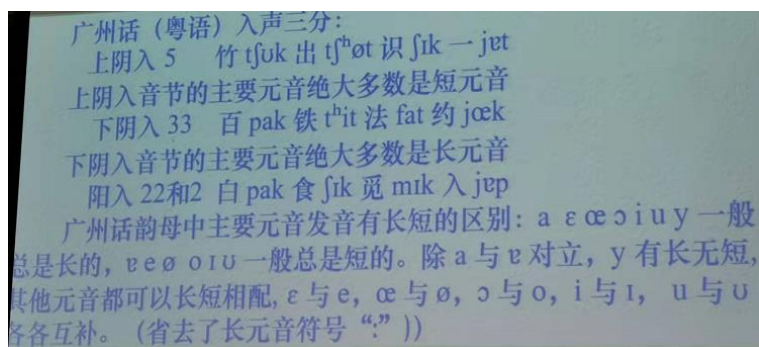 广州话（粤语）入声三分：
上阴入 5 竹 tʃʊk 出 tʃʰøt 识 ʃɪk 一 jɐt
上阴入音节的主要元音绝大多数是短元音
下阴入 33 百 pak 铁 tʰit 法 fat 约 jœk
下阴入音节的主要元音绝大多数是长元音
阳入 22和2 白 pak 食 ʃɪk 觅 mɪk 入 jɐp
广州话韵母中主要元音发音有长短的区别：a ɛ œ ɔ i u y 一般
总是长的，ɐ e ø o ɪ ʊ 一般总是短的。除 a 与 ɐ 对立，y 有长无短，
其他元音都可以长短相配, ɛ 与 e，œ 与 ø，ɔ 与 o，i 与 ɪ， u 与 ʊ
各各互补。（省去了长元音符号“:”））